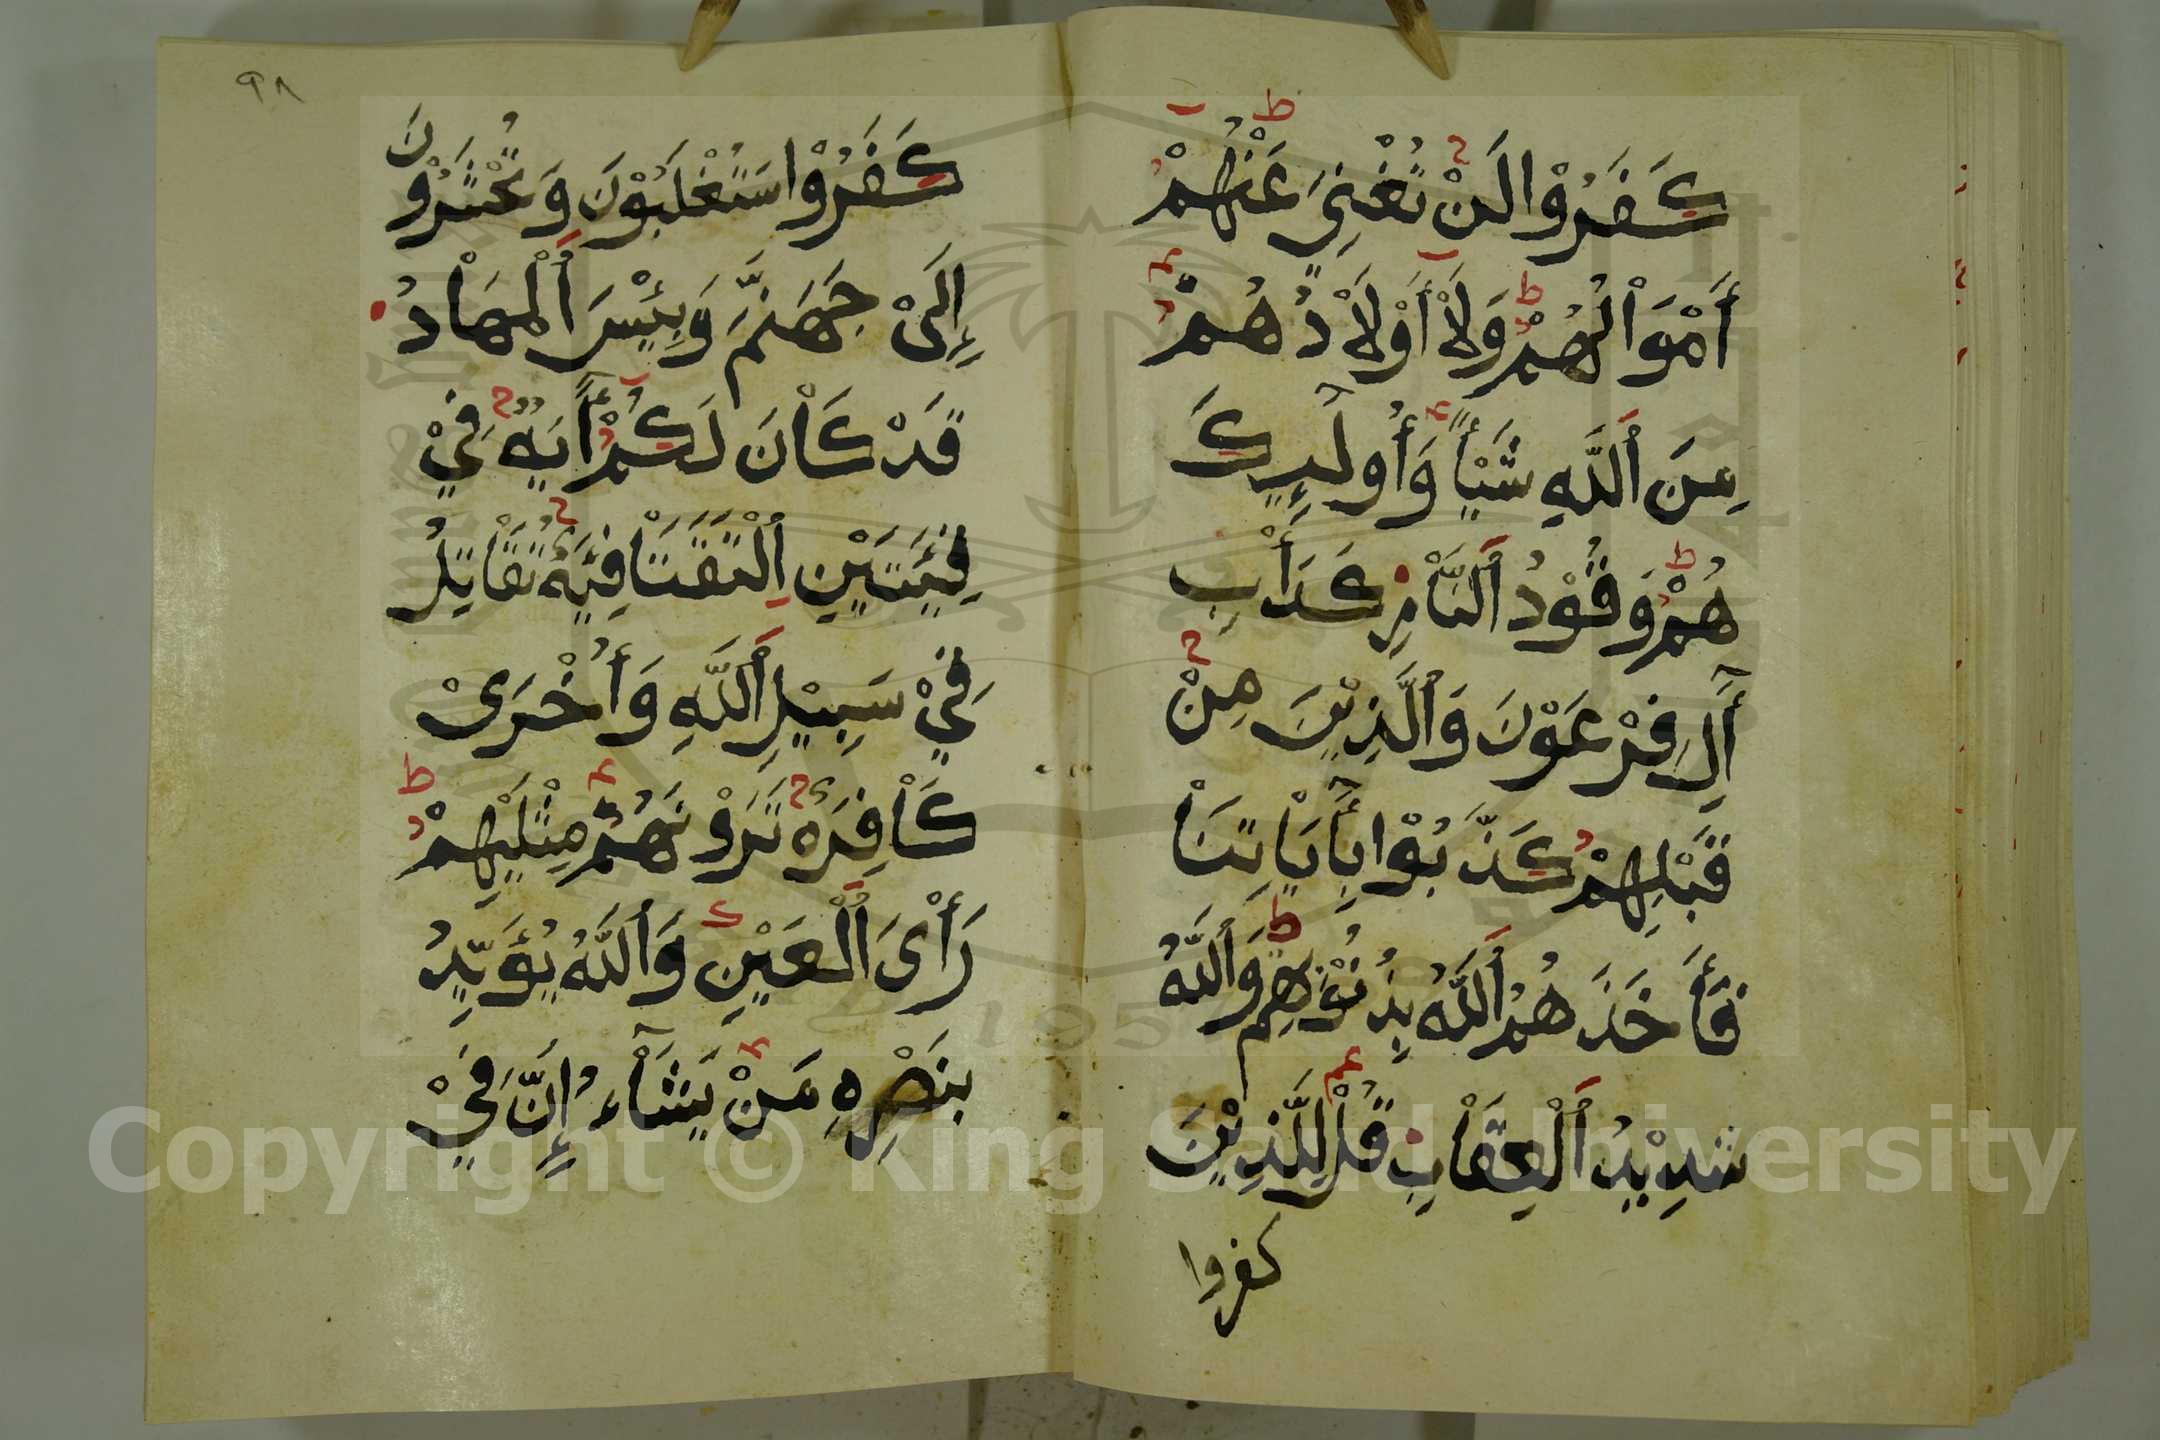 كَفَرُوْا لَنْ تُغْنِيَ عَنْهُمْ
أَمْوَاْلُهُمْ وَلَاْ أَوْلَاْدُهُمْ
مِنَ اَللَّهِ شَيْأً وَأُولَٓئِكَ
هُمْ وَقُوْدُ اَلنَّاْرِ كَدَأْبِ
آَلِ فِرْعَوْنَ وَالَّذِيْنَ مِنْ
قَبْلِهِمْ كَذَّبُوْا بِأٓيَاْتِنَاْ
فَأَخَذَهُمُ اَللَّهُ بِذُنُوْبِهِمْ وَاَللَّهُ
شَدِيْدُ اَلْعِقَاْبِ قُلْ لِلَّذِيْنَ
كفروا
٩٨
كَفَرُوْا سَتُغْلَبُوْنَ وَتُحْشَرُوْنَ
إِلَىْ جَهَنَّمَ وَبِئْسَ اَلْمِهَاْدُ
قَدْ كَاْنَ لَكُمْ أٓيَةٌ فِيْ
فِئَتَيْنِ اِلْتَقَتَاْ فِئَةٌ تُقَاْتِلُ
فِيْ سَبِيْلِ اَللَّهِ وَأُخْرَىْ
كَاْفِرَةٌ تَرَوْنَهُمْ مِثْلَيْهِمْ
رَأْىَ اَلْعَيْنِ وَاَللَّهُ يُؤَيِّدُ
بِنَصْرِهِ مَنْ يَشَآْءُ إِنَّ فِيْ
Copyright © King Saud University